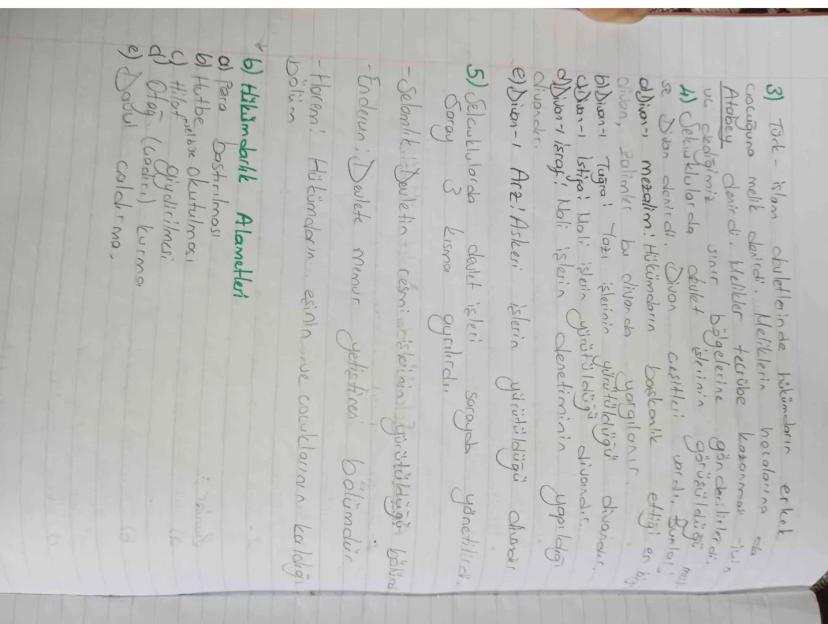 3) Türk-islam devletlerinde hükümdarın erkek
çocuğuna melik denirdi. Meliklerin hocalarına da
Atabey denirdi. Melikler tecrübe kazanması için
uç dediğimiz sınır bölgelerine gönderilirlerdi.
4) Selçuklularda devlet işlerinin görüşüldüğü
se Divan denirdi. Divan çeşitleri vardı. Bunlar;
a) Divan-ı mezalim: Hükümdarın başkanlık ettiği en
divan, zalimler bu divanda yargılanır.
b) Divan-ı Tuğra: Yazı işlerinin yürütüldüğü divandır.
c) Divan-ı İstifa: Mali işlerin yürütüldüğü divandır.
d) Divan-ı İşraf: Mali işlerin denetiminin yapıldığı
divandır.
e) Divan-ı Arz: Askeri işlerin yürütüldüğü divandır
5) Selçuklularda devlet işleri sarayda yönetilirdi.
Saray 3 kısma ayrılırdı
-Selamlık: Devletin resmi işlerinin yürütüldüğün bölüm
-Enderun: Devlete memur yetiştiren bölümdür
-Harem: Hükümdarın eşinin ve çocuklarının kaldığı
bölüm
6) Hükümdarlık Alametleri
a) Para bastırılması
b) Hutbe okutulması
c) Hilat giydirilmesi
d) Otağ (çadırı) kurma
e) Davul çaldırma.